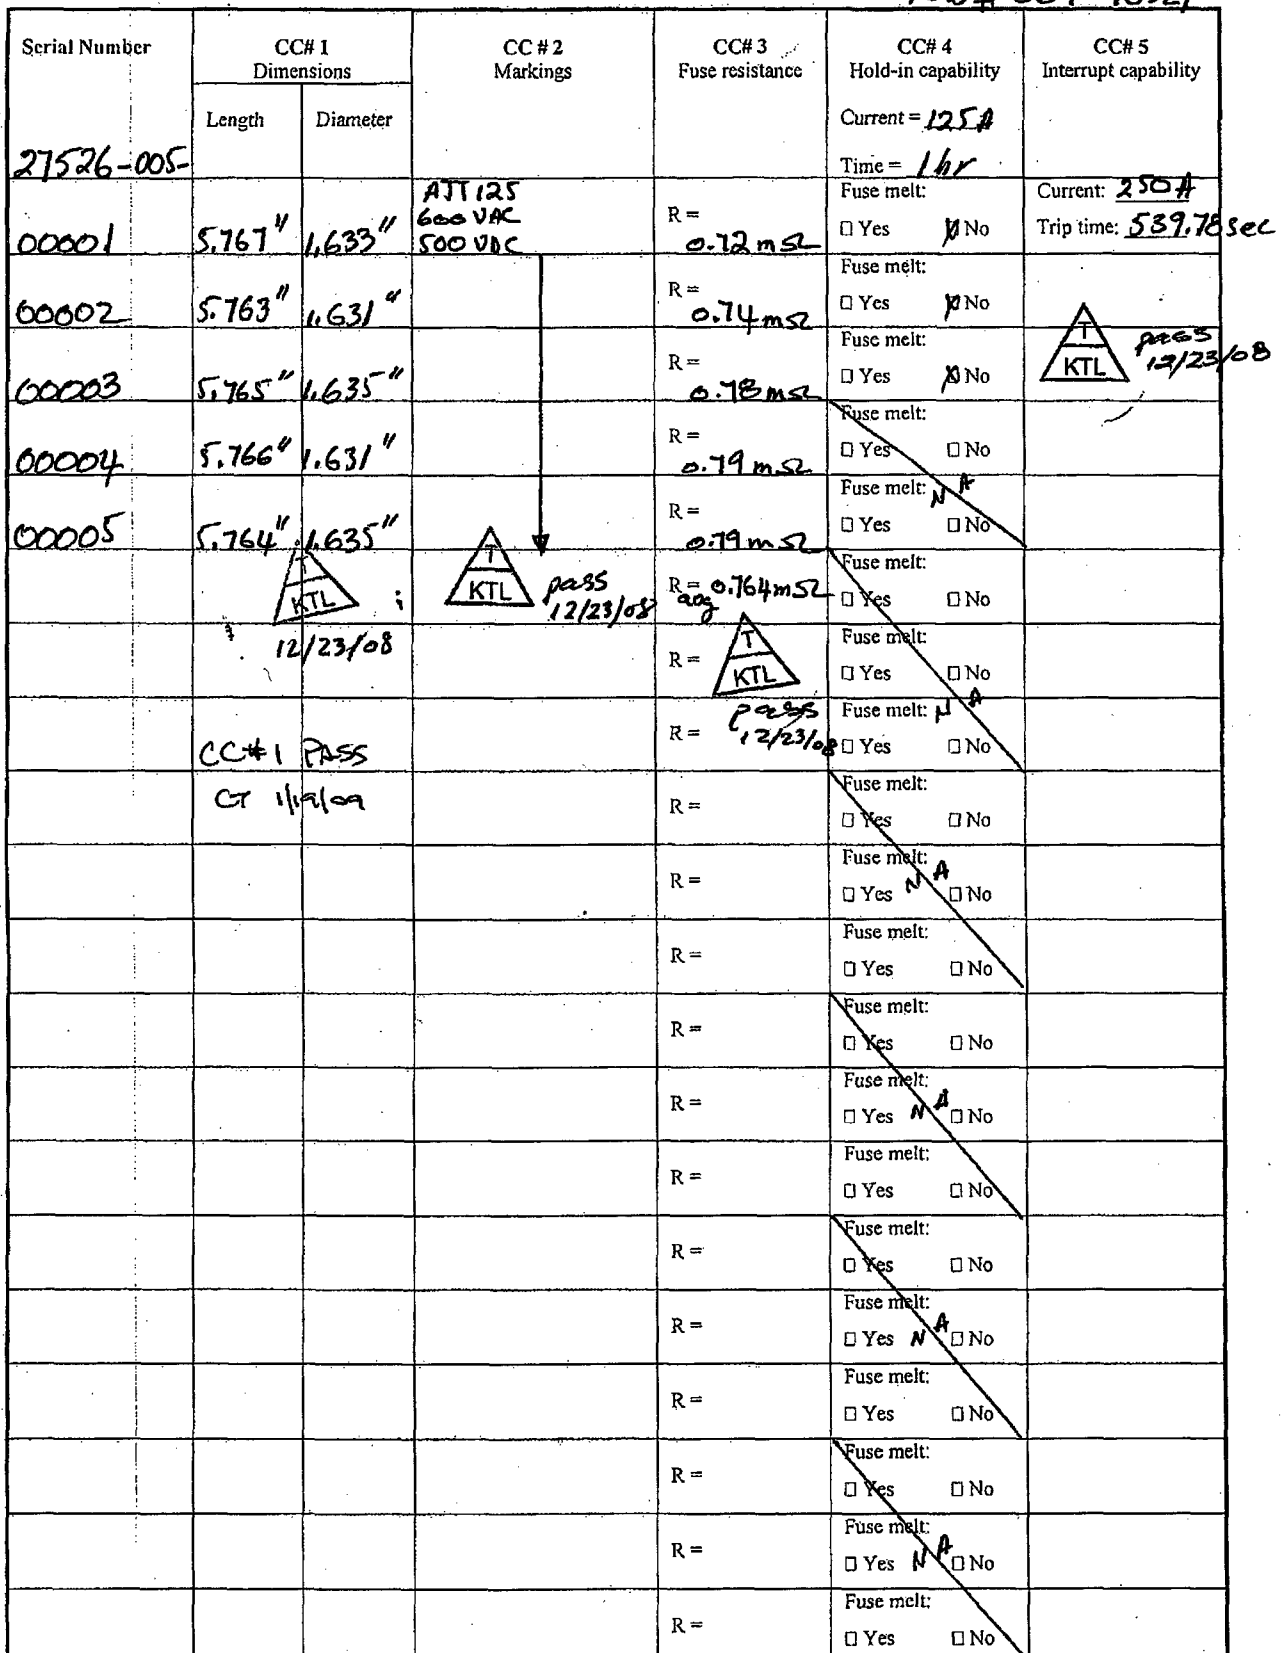 Serial Number
CC# 1
Dimensions
CC # 2
Markings
CC# 3
Fuse resistance
CC# 4
Hold-in capability
CC# 5
Interrupt capability
Length
Diameter
Current = 125A
Time = 1hr
27526-005-
00001
5.767"
1.633"
AJT125
600 VAC
500 VDC
R =
0.72mΩ
Fuse melt:
☐ Yes ☒ No
Current: 250A
Trip time: 539.78 sec
00002
5.763"
1.631"
R =
0.74mΩ
Fuse melt:
☐ Yes ☒ No
T
KTL
pass
12/23/08
00003
5.765"
1.635"
R =
0.78mΩ
Fuse melt:
☐ Yes ☒ No
00004
5.766"
1.631"
R =
0.79mΩ
Fuse melt:
☐ Yes ☐ No
00005
5.764"
1.635"
R =
0.79mΩ
Fuse melt: N A
☐ Yes ☐ No
T
KTL
12/23/08
T
KTL
pass
12/23/08
R = 0.764mΩ
avg
Fuse melt:
☐ Yes ☐ No
R =
T
KTL
pass
12/23/08
Fuse melt:
☐ Yes ☐ No
CC#1 PASS
CT 1/19/09
R =
Fuse melt: N A
☐ Yes ☐ No
R =
Fuse melt:
☐ Yes ☐ No
R =
Fuse melt:
☐ Yes N A ☐ No
R =
Fuse melt:
☐ Yes ☐ No
R =
Fuse melt:
☐ Yes ☐ No
R =
Fuse melt:
☐ Yes N A ☐ No
R =
Fuse melt:
☐ Yes ☐ No
R =
Fuse melt:
☐ Yes ☐ No
R =
Fuse melt:
☐ Yes N A ☐ No
R =
Fuse melt:
☐ Yes ☐ No
R =
Fuse melt:
☐ Yes ☐ No
R =
Fuse melt:
☐ Yes N A ☐ No
R =
Fuse melt:
☐ Yes ☐ No